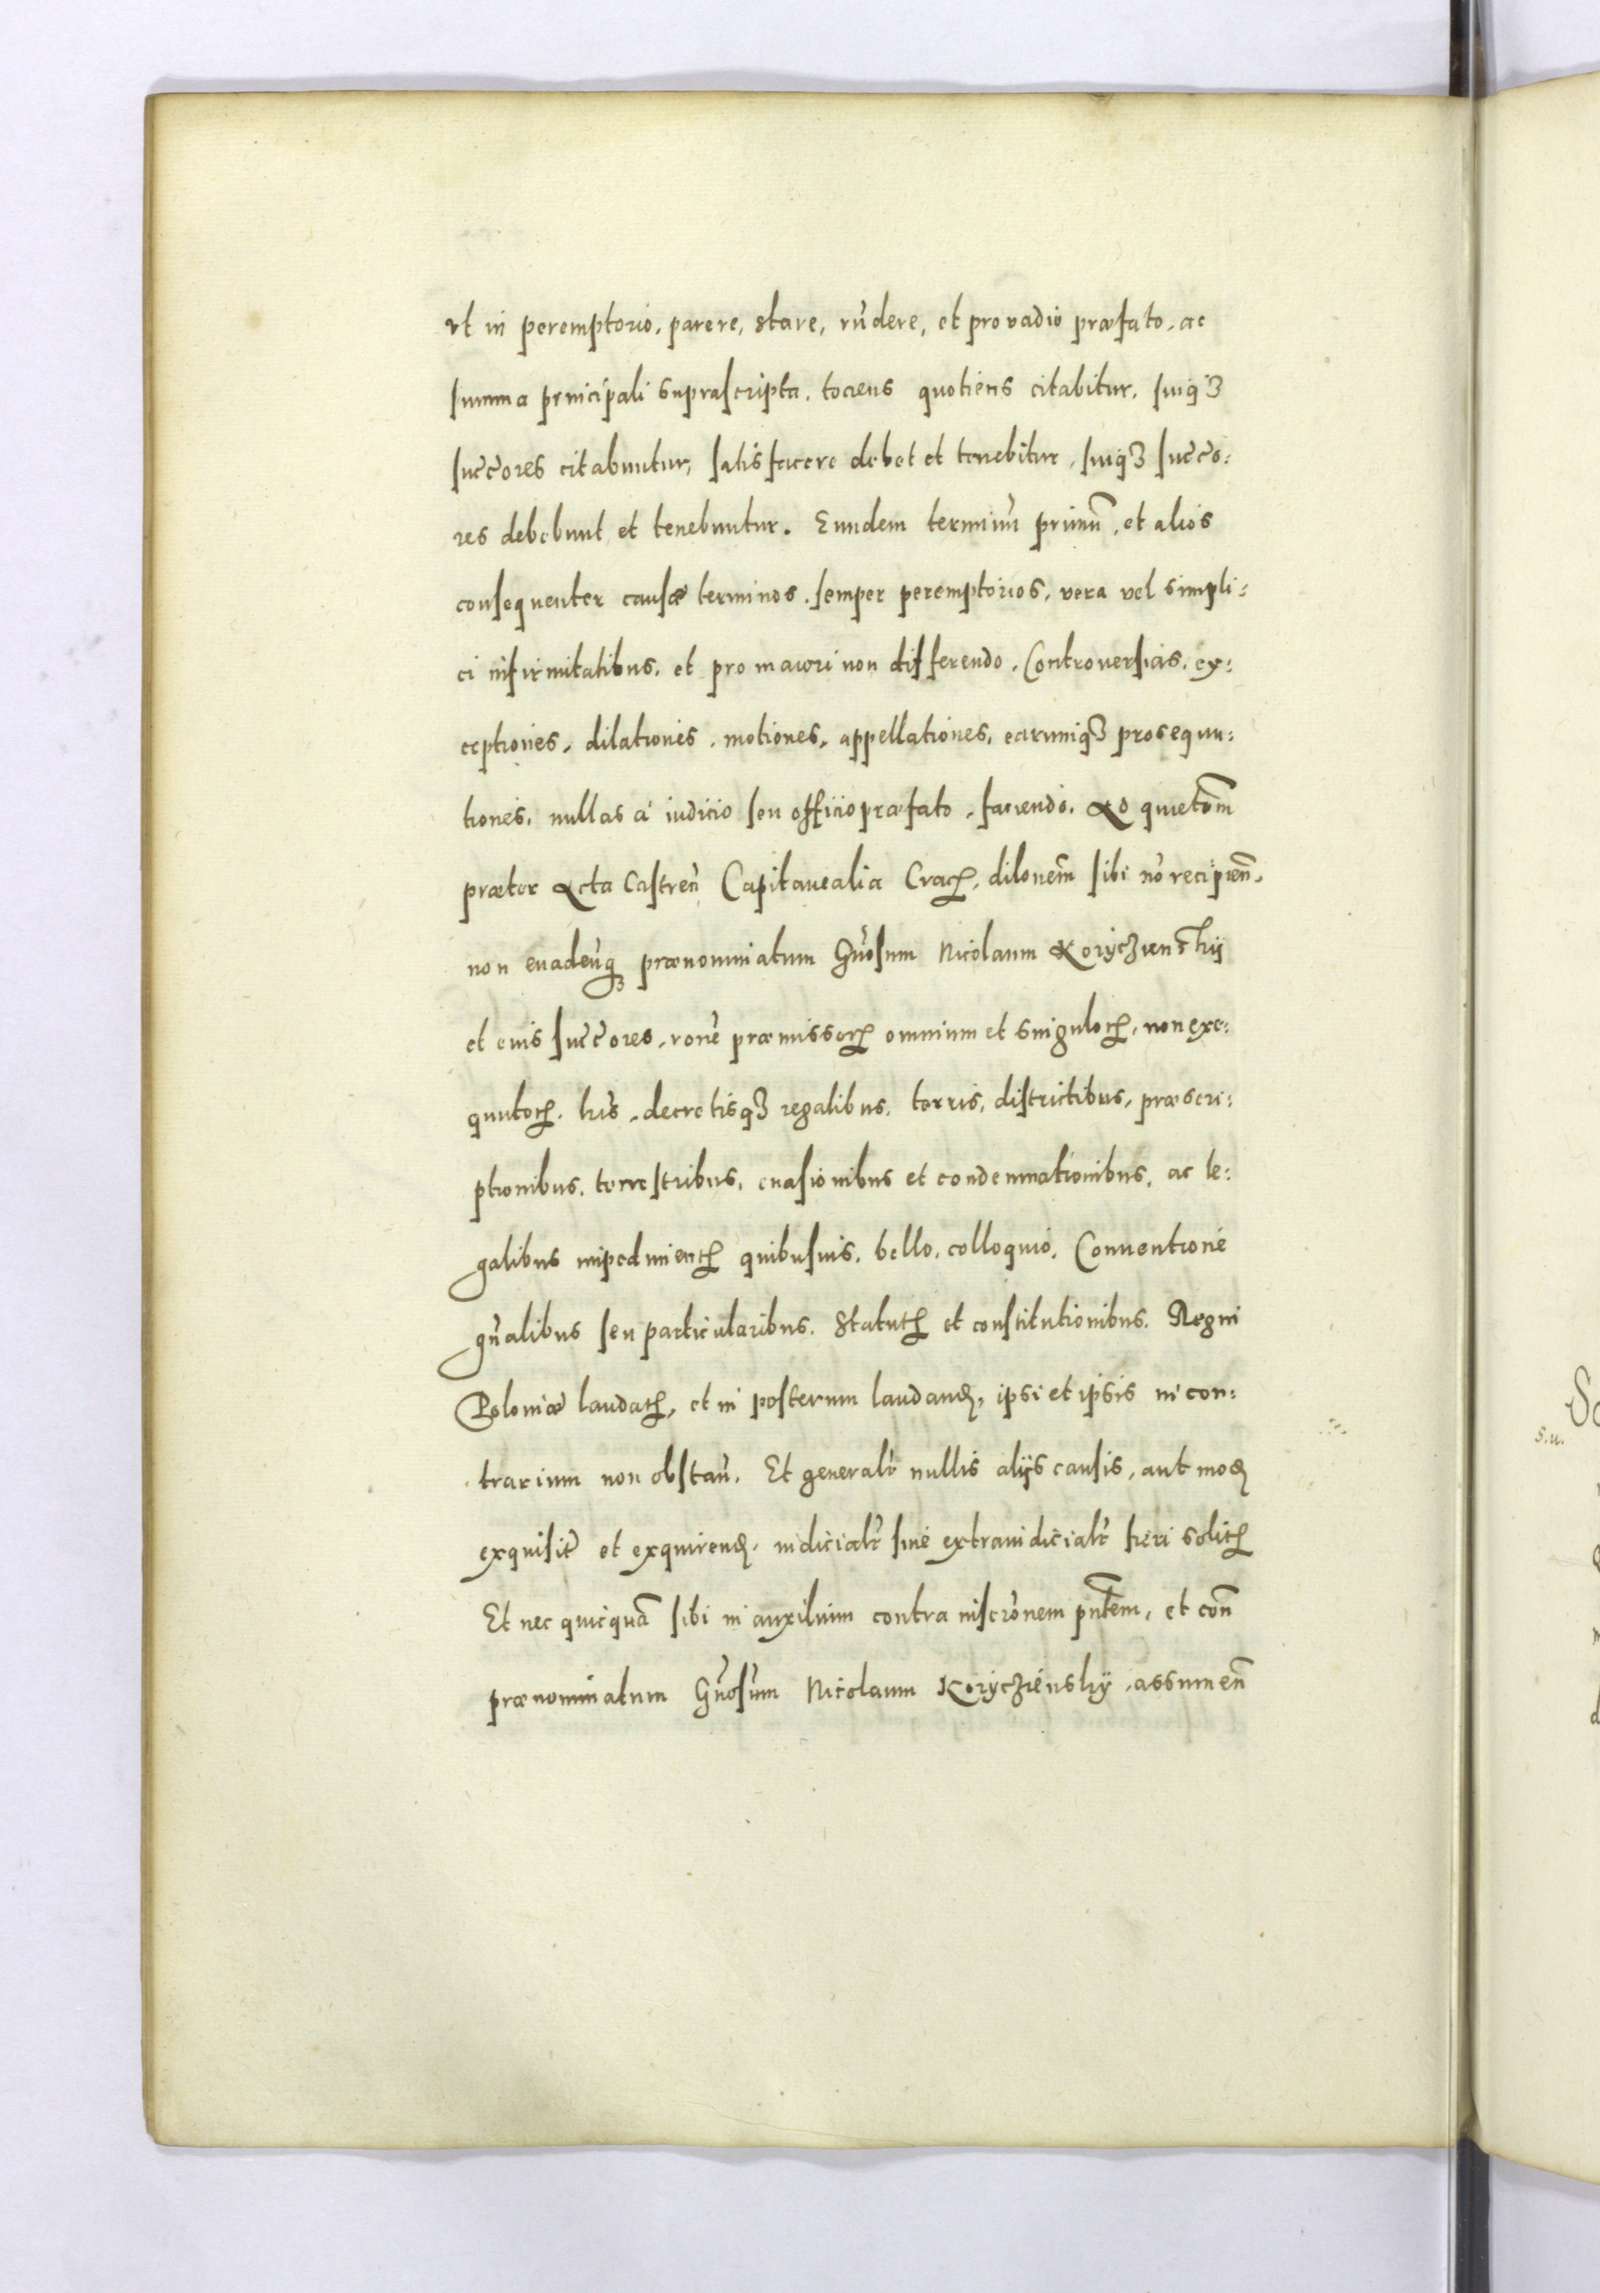 vt in peremptorio, parere, stare, rñdere, et pro vadio præfato, ac
summa principali suprascripta, tociens quotiens citabitur, suiq3
successores citabuntur, satisfacere debet et tenebitur, suiq3 successo:
res debebunt et tenebuntur. Eundem terminū primū, et alios
consequenter causæ terminos, semper peremptorios, vera vel simpli:
ci infirmitatibus, et pro maiori non differendo, Controuersias, ex:
ceptiones, dilationes, motiones, appellationes, earumq3 prosequu:
tiones, nullas a iudicio seu officio præfato, faciendo, Ad quietom̃
præter Acta Castreñ Capitanealia Crac̃, dilonem̃ sibi nō recipieñ,
non euadeñq3 prænominatum Gñosum Nicolaum Koryczienskij
et euis successores, rone præmissor̃ omnium et singulor̃, non exe:
quutor̃, lris, decretisq3 regalibus, terris, districtibus, præscri:
ptionibus, terrestribus, euasionibus et condemnationibus, ac le:
galibus impedimentꝭ quibusuis, bello, colloquio, Conuentione
gñalibus seu particularibus, Statutꝭ et constitutionibus, Regni
Poloniæ laudatꝭ, et in posterum laudanđ, ipsi et ipsis in con:
trarium non obstañ. Et generalr̃ nullis alijs causis, aut mođ
exquisit̃ et exquirenđ, iudicialr̃ siue extraiudicialr̃ fieri solitꝭ
Et nec quicquā sibi in auxilium contra inscronem pñtem, et coñ
prænominatum Gñosum Nicolaum Koryczienskij, assumeñ
S.u.